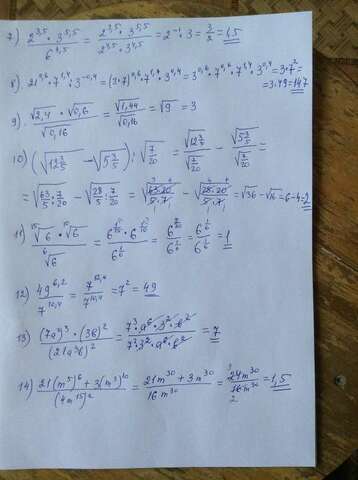 7) 2^{3,5} · 3^{5,5} / 6^{4,5} = 2^{3,5} · 3^{5,5} / 2^{4,5} · 3^{4,5} = 2^{-1} · 3 = 3/2 = 1,5
8) 21^{0,6} · 7^{1,4} · 3^{0,4} = (3·7)^{0,6} · 7^{1,4} · 3^{0,4} = 3^{0,6} · 7^{0,6} · 7^{1,4} · 3^{0,4} = 3·7^2 =
= 3·49 = 147
9) √2,4 · √0,6 / √0,16 = √1,44 / √0,16 = √9 = 3
10) (√12 3/5 − √5 3/5) : √7/20 = √12 3/5 / √7/20 − √5 3/5 / √7/20 =
= √63/5 · 7/20 − √28/5 · 7/20 = √63·20/5·7 − √28·20/5·7 = √36 − √16 = 6 − 4 = 2
11) ^{15}√6 · ^{10}√6 / ^6√6 = 6^{1/15} · 6^{1/10} / 6^{1/6} = 6^{1/6} / 6^{1/6} = 1
12) 49^{6,2} / 7^{10,4} = 7^{12,4} / 7^{10,4} = 7^2 = 49
13) (7a^2)^3 · (3b)^2 / (21a^3b)^2 = 7^3 · a^6 · 3^2 · b^2 / 7^2 · 3^2 · a^6 · b^2 = 7
14) 21(m^5)^6 + 3(m^3)^{10} / (4m^{15})^2 = 21m^{30} + 3m^{30} / 16m^{30} = 24m^{30} / 16m^{30} = 1,5